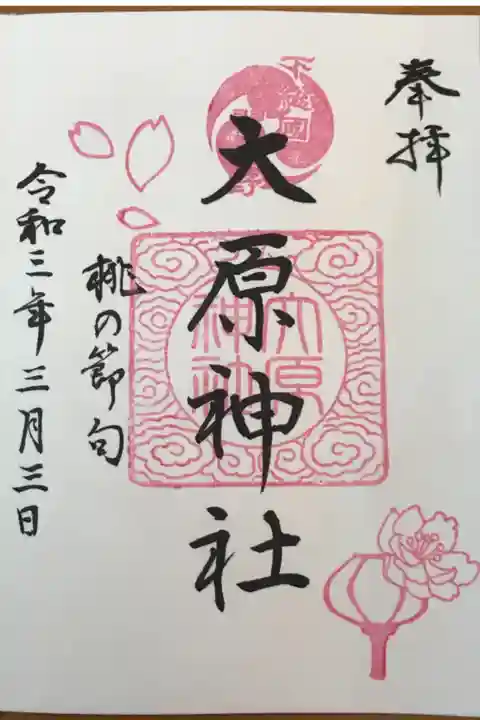 奉拝
大原神社
桃の節句
令和三年三月三日
大原
神社